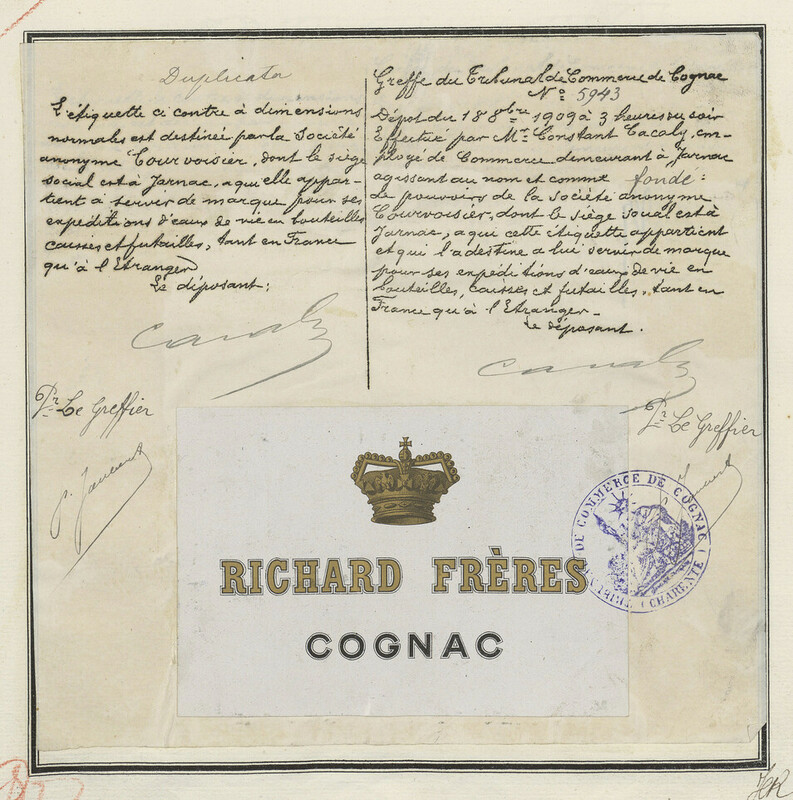 Duplicata
L'étiquette ci contre à dimensions
normales est destinée par la Société
anonyme Courvoisier, dont le siège
social est à Jarnac, a qui elle appar-
tient à servir de marque pour ses
expéditions d'eaux de vie en bouteilles
caisses et futailles, tant en France
qu'à l'Etranger
Le déposant:
Pr Le Greffier
Greffe du Tribunal de Commerce de Cognac
No 5943
Dépot du 18 8bre 1909 à 3 heures du soir
Effectué par Mr Constant Cacaly, em-
ployé de Commerce demeurant à Jarnac
agissant au nom et comme fondé:
de pouvoirs de la Société anonyme
Courvoisier, dont le siège social est à
Jarnac, a qui cette étiquette appartient
et qui l'a destine a lui servir de marque
pour ses expéditions d'eaux de vie en
bouteilles, caisses et futailles, tant en
France qu'à l'Etranger-
Le déposant.
Pr Le Greffier
RICHARD FRÈRES
COGNAC
DE COMMERCE DE COGNAC
(CHARENTE)